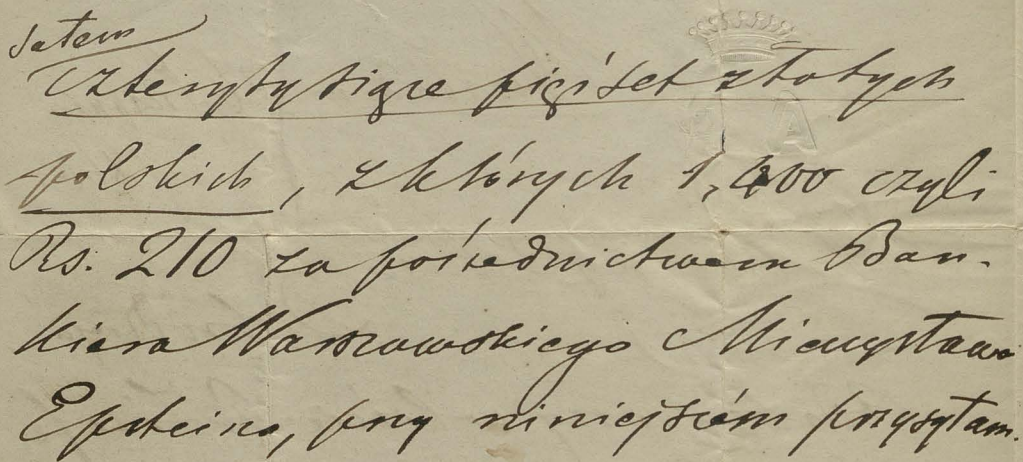 zatem
czterytysiące pięćset złotych
polskich, z których 1,400 czyli
Rs. 210 za pośrednictwem Ban-
kiera Warszawskiego Mieczysława
Epsteina, przy niniejszém przysyłam.
A